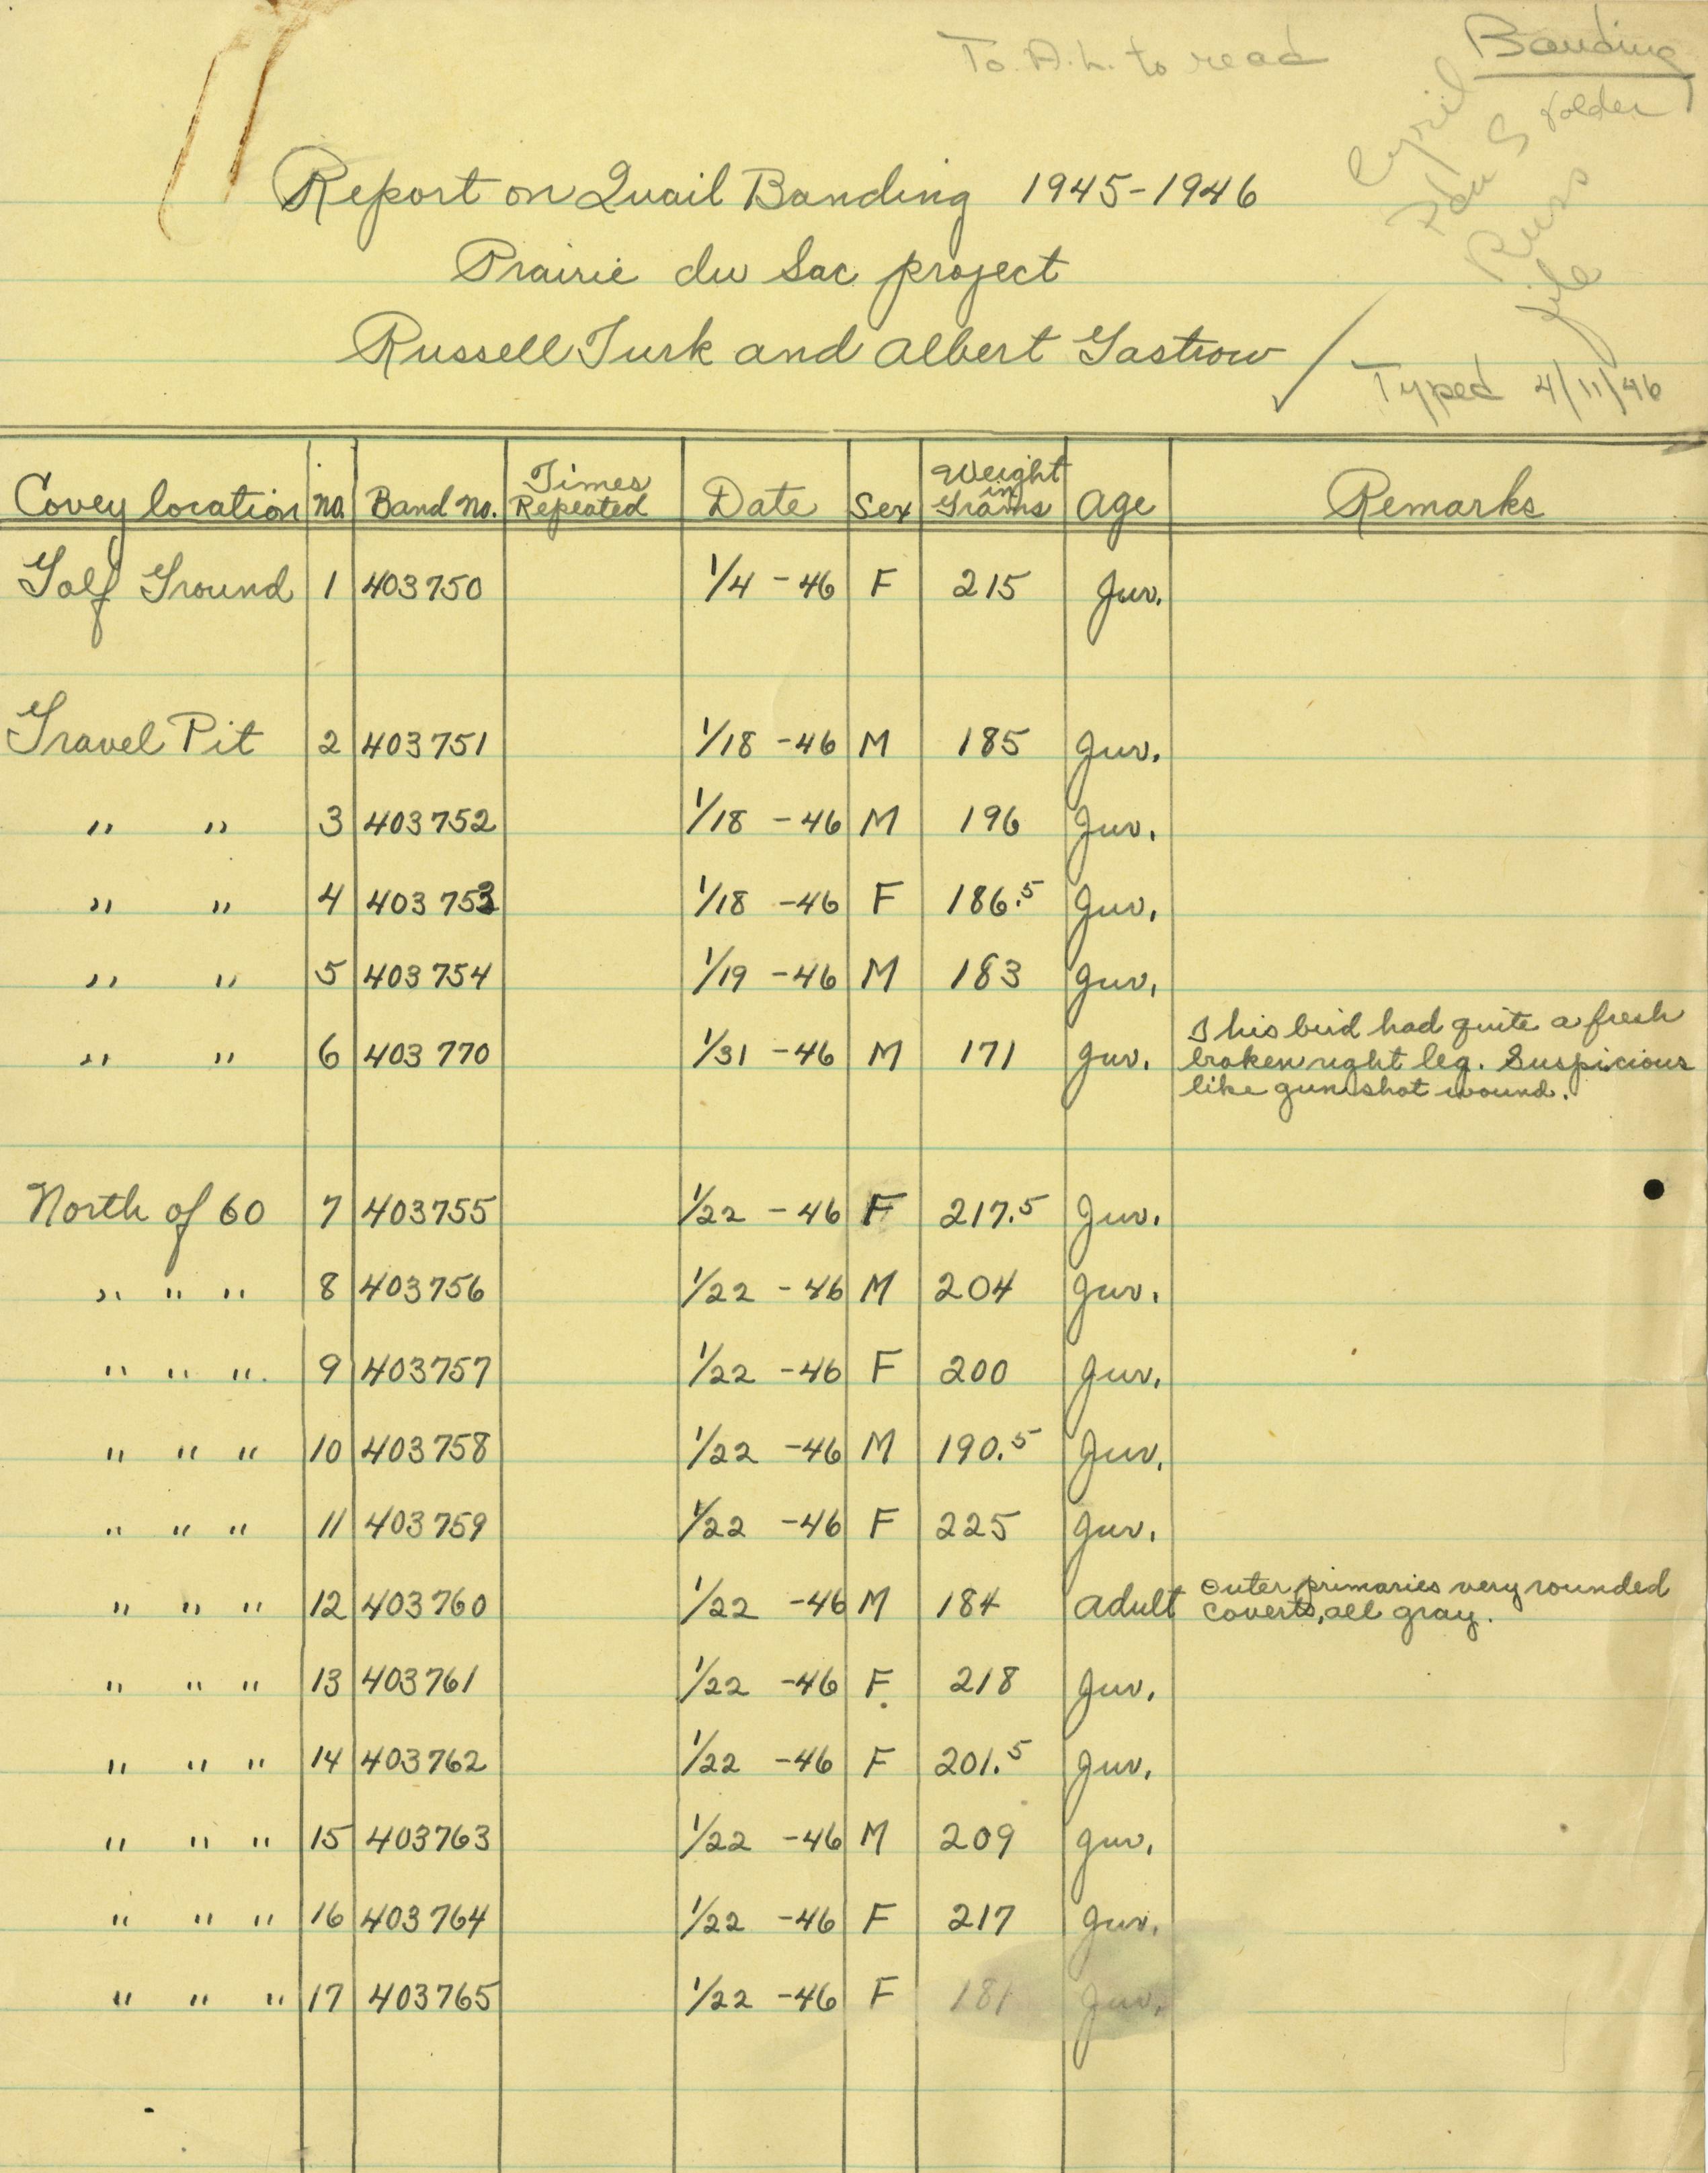 To A.L. to read
Banding
folder
Cyril
PduS
Russ
file
Report on Quail Banding 1945-1946
Prairie du Sac project
Russell Turk and Albert Gastrow
Typed 4/11/46
Covey location No. Band No. Times Repeated Date Sex Weight in Grams Age Remarks
Golf Ground 1 403750 1/4 -46 F 215 Juv.
Gravel Pit 2 403751 1/18 -46 M 185 Juv.
" " 3 403752 1/18 -46 M 196 Juv.
" " 4 403753 1/18 -46 F 186.5 Juv.
" " 5 403754 1/19 -46 M 183 Juv.
" " 6 403770 1/31 -46 M 171 Juv. This bird had quite a fresh
broken right leg. Suspicious
like gunshot wound.
North of 60 7 403755 1/22 -46 F 217.5 Juv.
" " " 8 403756 1/22 -46 M 204 Juv.
" " " 9 403757 1/22 -46 F 200 Juv.
" " " 10 403758 1/22 -46 M 190.5 Juv.
" " " 11 403759 1/22 -46 F 225 Juv.
" " " 12 403760 1/22 -46 M 184 Adult Outer primaries very rounded
coverts, all gray.
" " " 13 403761 1/22 -46 F 218 Juv.
" " " 14 403762 1/22 -46 F 201.5 Juv.
" " " 15 403763 1/22 -46 M 209 Juv.
" " " 16 403764 1/22 -46 F 217 Juv.
" " " 17 403765 1/22 -46 F 181 Juv.